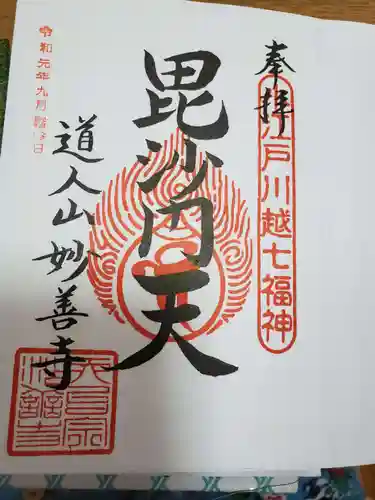 奉拝
小江戸川越七福神
毘沙門天
道人山妙善寺
令和元年九月
日